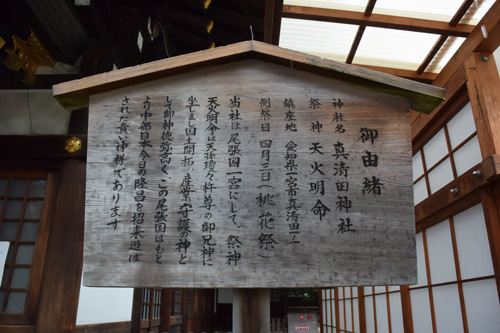 御由緒
神社名 真清田神社
祭神 天火明命
鎮座地 愛知県一宮市真清田一丁
例祭日 四月三日(桃花祭)
当社は尾張国一宮にして、祭神
天火明命は天孫瓊々杵尊の御兄神に
坐しまし国土開拓、産業守護の神と
して御神徳弥高く、この尾張国はもと
より中部日本今日の隆昌を招来遊ば
された貴い神様であります